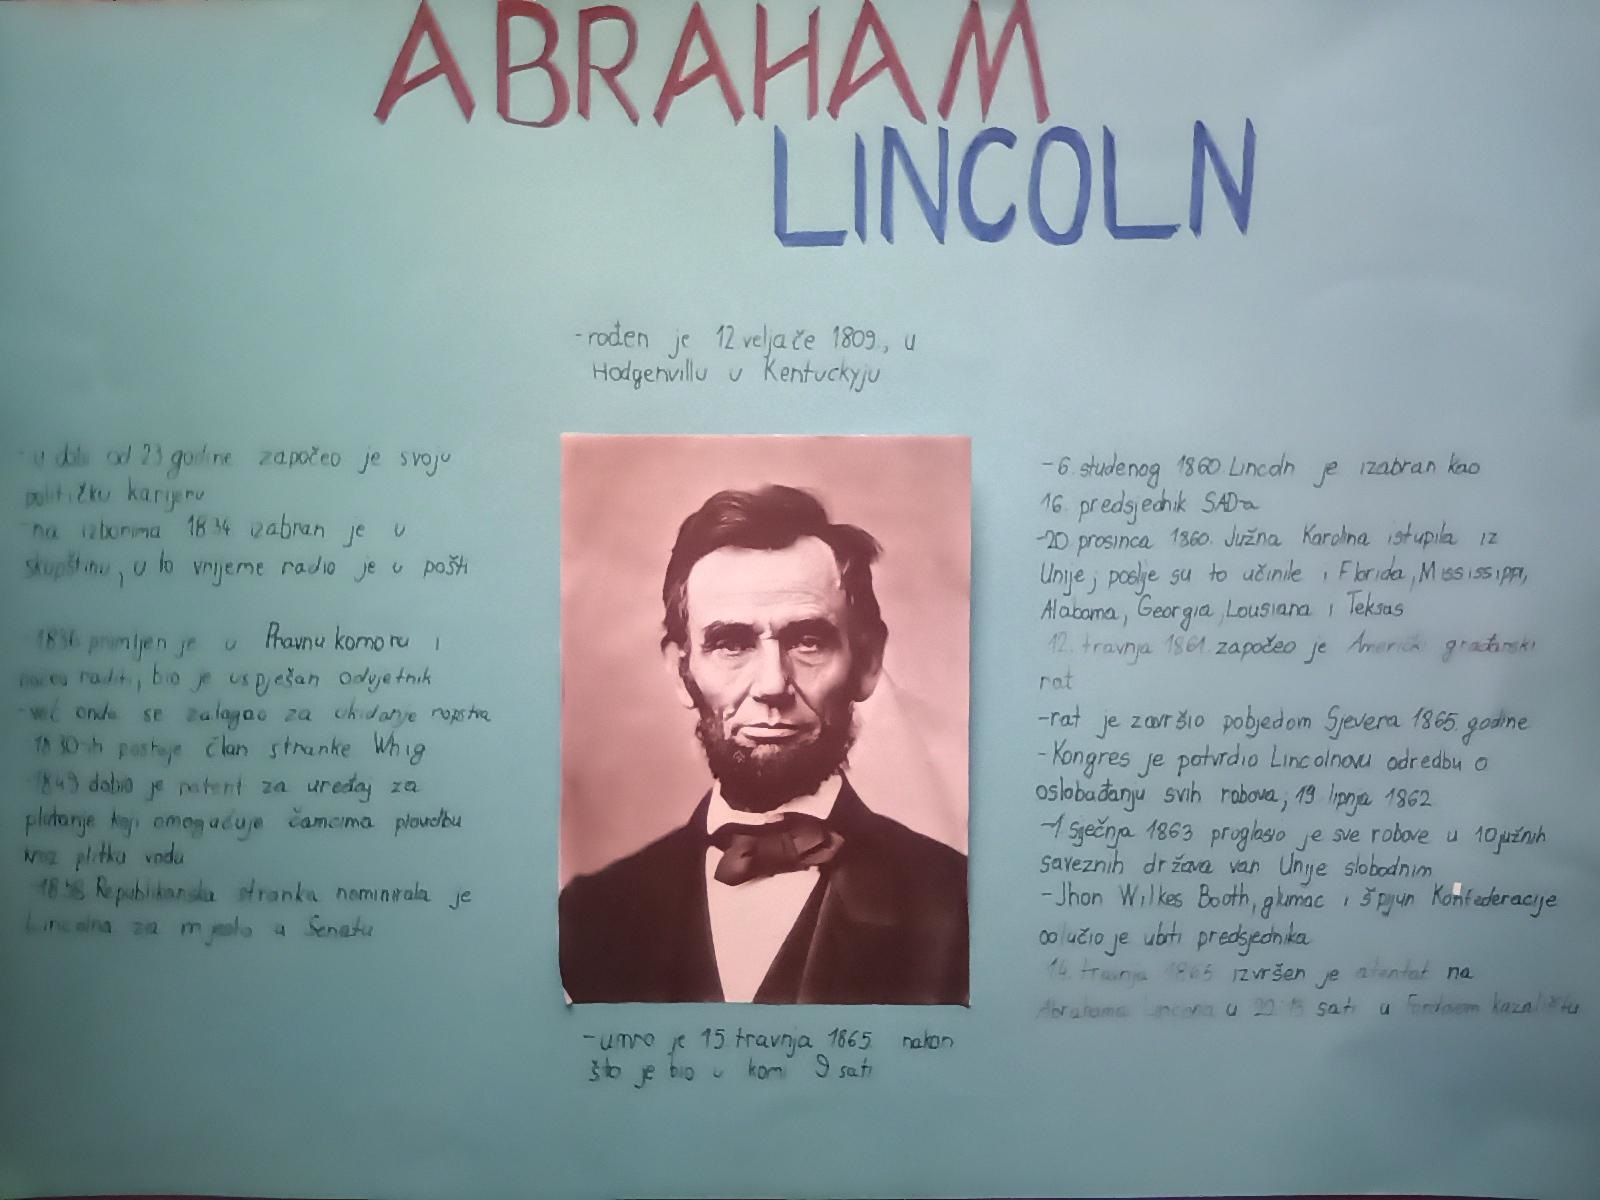 ABRAHAM
LINCOLN
-rođen je 12 veljače 1809., u
Hodgenvillu u Kentuckyju
-u dobi od 23 godine započeo je svoju
političku karijeru
-na izborima 1834 izabran je u
skupštinu, u to vrijeme radio je u pošti
1836 primljen je u Pravnu komoru i
raditi, bio je uspješan odvjetnik
-već onda se zalagao za ukidanje ropstva
1830-ih postaje član stranke Whig
-1849 dobio je patent za uređaj za
plutanje koji omogućuje čamcima plovidbu
kroz plitku vodu
1858 Republikanska stranka nominirala je
Lincolna za mjesto u Senatu
-6. studenog 1860. Lincoln je izabran kao
16. predsjednik SAD-a
-20 prosinca 1860. Južna Karolina istupila iz
Unije, poslje su to učinile i Florida, Mississippi,
Alabama, Georgia, Lousiana i Teksas
12. travnja 1861. započeo je Američki građanski
rat
-rat je završio pobjedom Sjevera 1865. godine
-Kongres je potvrdio Lincolnovu odredbu o
oslobađanju svih robova, 19 lipnja 1862
-1 siječnja 1863 proglasio je sve robove u 10 južnih
saveznih država van Unije slobodnim
-Jhon Wilkes Booth, glumac i špijun Konfederacije
odlučio je ubiti predsjednika
14. travnja 1865 izvršen je atentat na
Abrahama u 22:15 sati u Fordovom kazalištu
-umro je 15 travnja 1865 nakon
što je bio u komi 9 sati